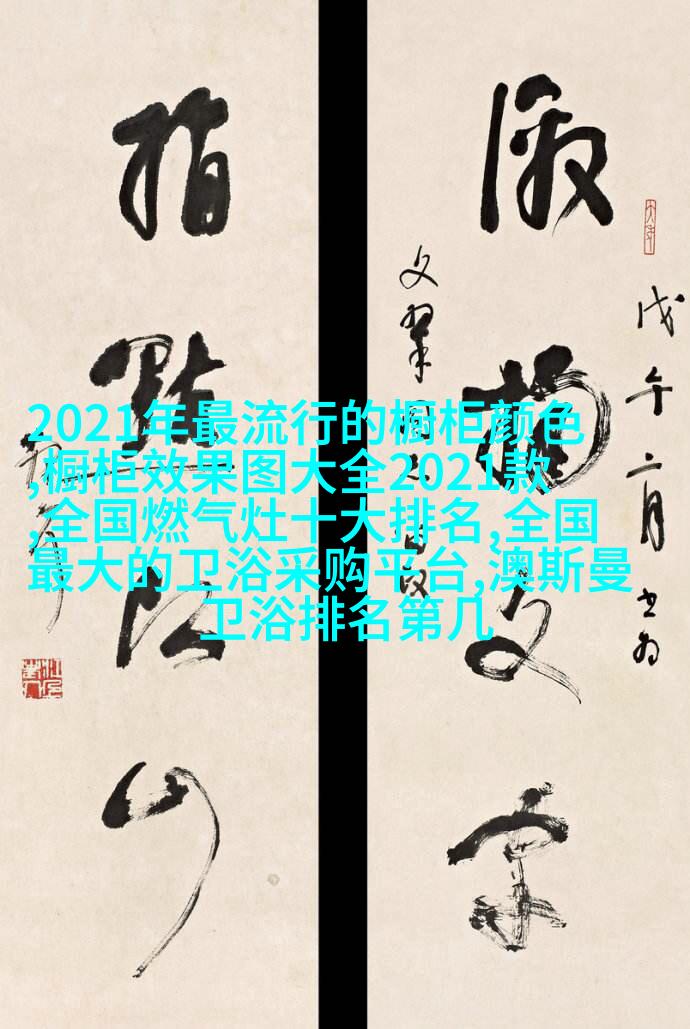 2021年最流行的橱柜颜色
,橱柜效果图大全2021款
,全国燃气灶十大排名,全国
最大的卫浴采购平台,澳斯曼
卫浴排名第几
戊午二月书为
激扬文字
指點江山